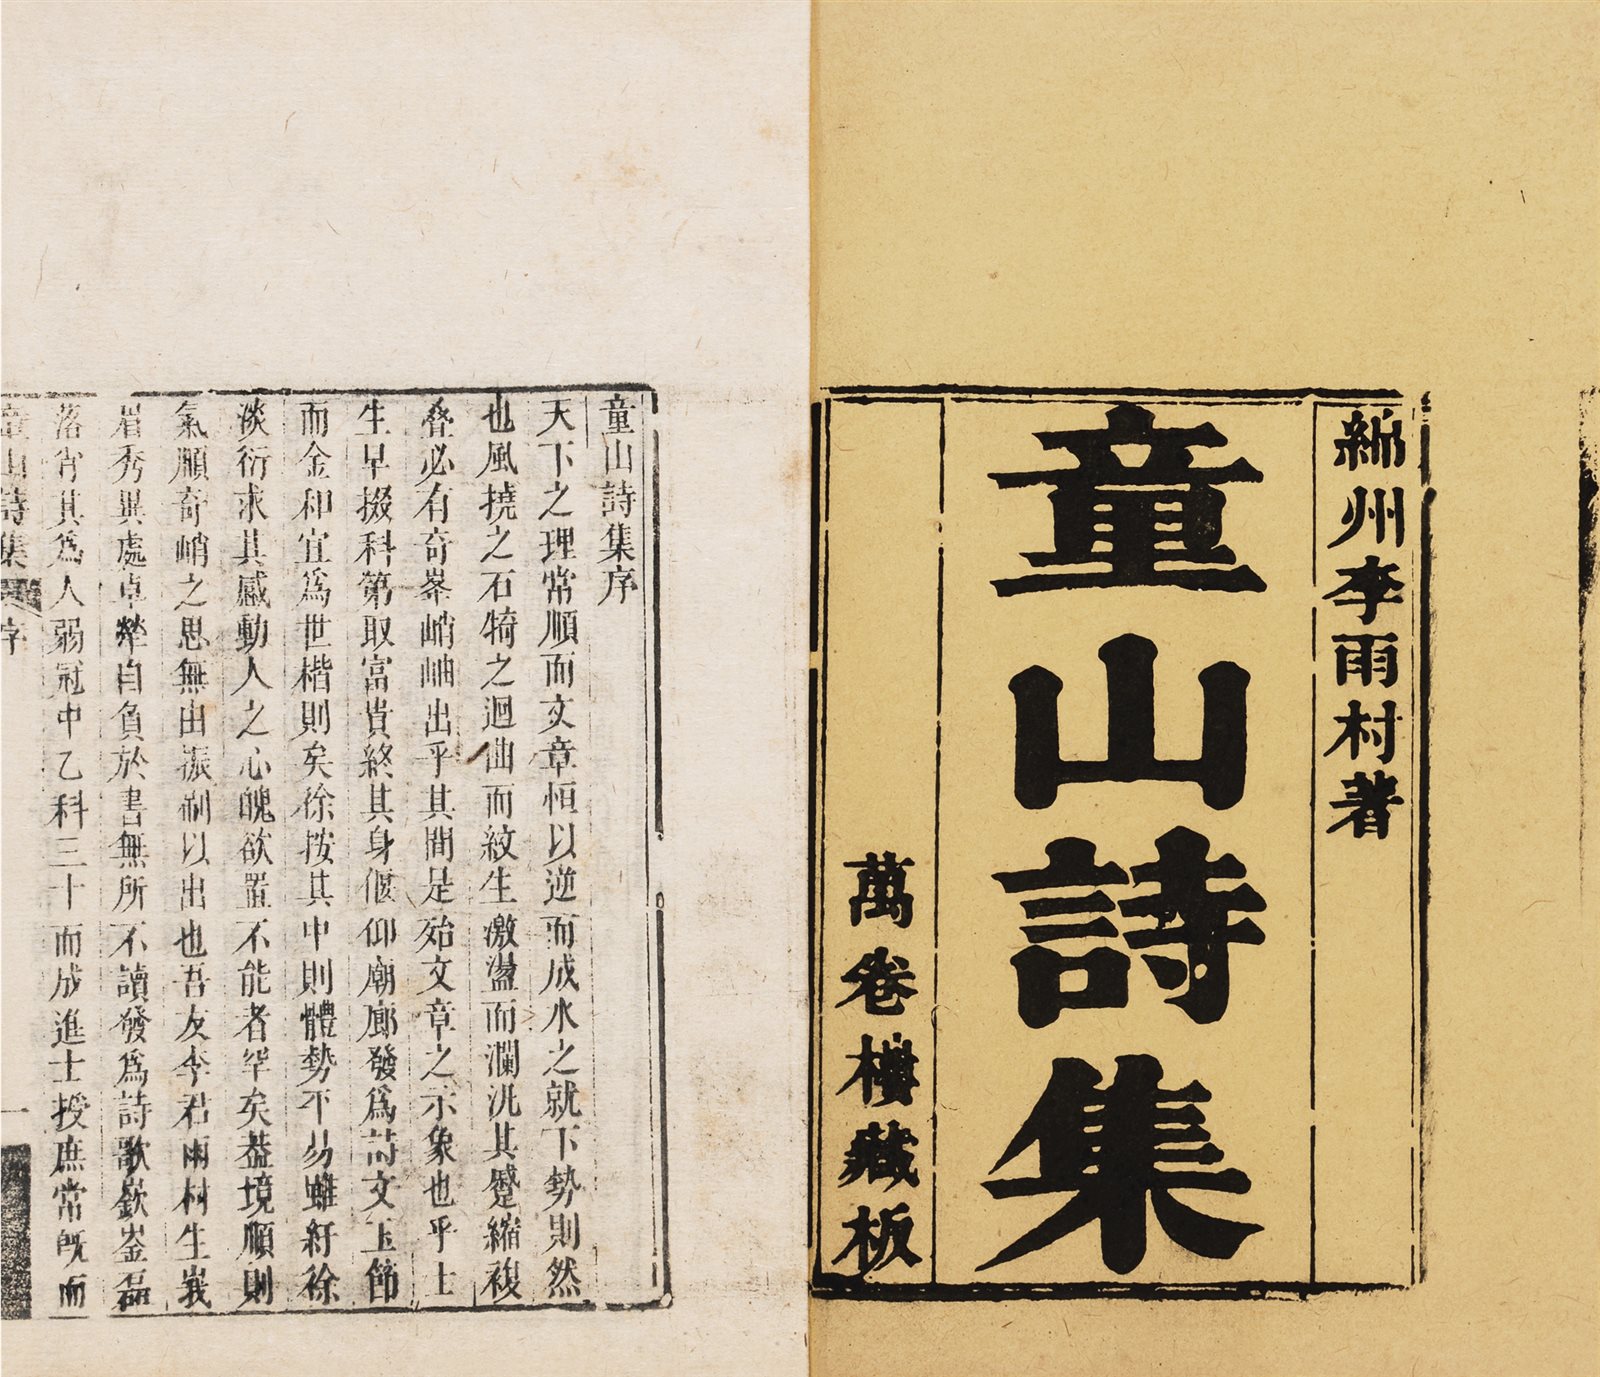 緜州李雨村著
童山詩集
萬卷樓藏板
童山詩集序
天下之理常順而文章恒以逆而成水之就下勢則然
也風撓之石犄之迴曲而紋生激盪而瀾洸其蹙縮複
叠必有奇峯峭岫出乎其間是殆文章之示象也乎士
生早掇科第取富貴終其身偃仰廟廊發爲詩文玉節
而金和宜爲世楷則矣徐按其中則體勢平易雖紆徐
淡衍求其感動人之心魄欲置不能者罕矣葢境順則
氣順奇峭之思無由振刷以出也吾友李君雨村生峩
眉秀異處卓犖自負於書無所不讀發爲詩歌嶔崟磊
落肖其爲人弱冠中乙科三十而成進士授庶常既而
童山詩集 序 一